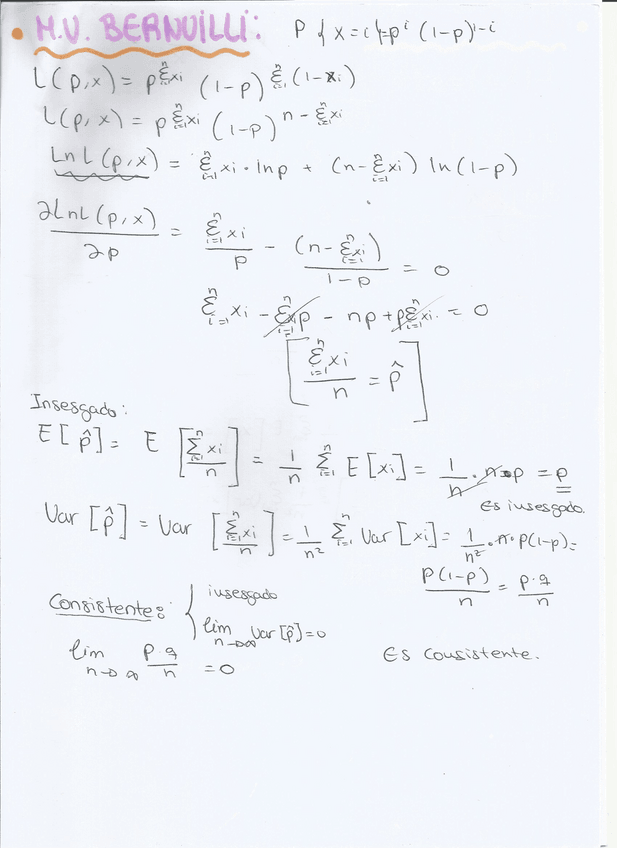 M.V. BERNUILLI: P{x=i}=pⁱ (1-p)¹⁻ⁱ
L(p,x) = p^{Σ_{i=1}^{n} xi} (1-p)^{Σ_{i=1}^{n} (1-xi)}
L(p,x) = p^{Σ_{i=1}^{n} xi} (1-p)^{n - Σ_{i=1}^{n} xi}
Ln L(p,x) = Σ_{i=1}^{n} xi · ln p + (n - Σ_{i=1}^{n} xi) ln(1-p)
∂LnL(p,x)/∂p = Σ_{i=1}^{n} xi / p - (n - Σ_{i=1}^{n} xi)/(1-p) = 0
Σ_{i=1}^{n} xi - Σ_{i=1}^{n} xi p - np + p Σ_{i=1}^{n} xi = 0
[Σ_{i=1}^{n} xi / n = p̂]
Insesgado:
E[p̂] = E[Σ_{i=1}^{n} xi / n] = 1/n Σ_{i=1}^{n} E[xi] = 1/n · n · p = p
es insesgado.
Var[p̂] = Var[Σ_{i=1}^{n} xi / n] = 1/n² Σ_{i=1}^{n} Var[xi] = 1/n² · n · p(1-p) =
p(1-p)/n = p·q/n
Consistente: { insesgado
lim_{n→∞} Var[p̂] = 0
lim_{n→∞} p·q/n = 0
Es consistente.